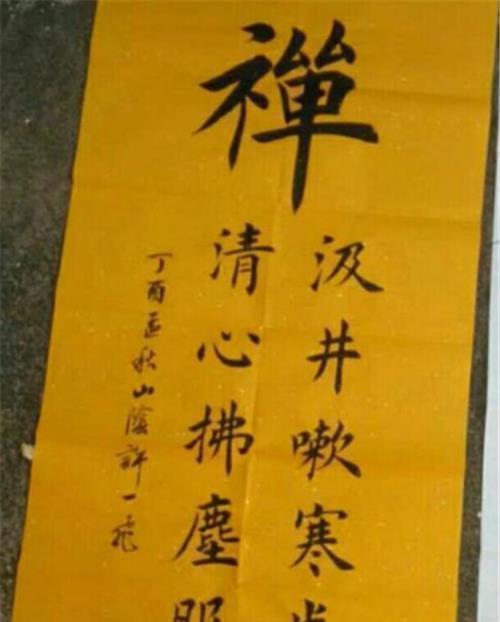 禪
汲井嗽寒
清心拂塵
丁酉秋山陰許一飛